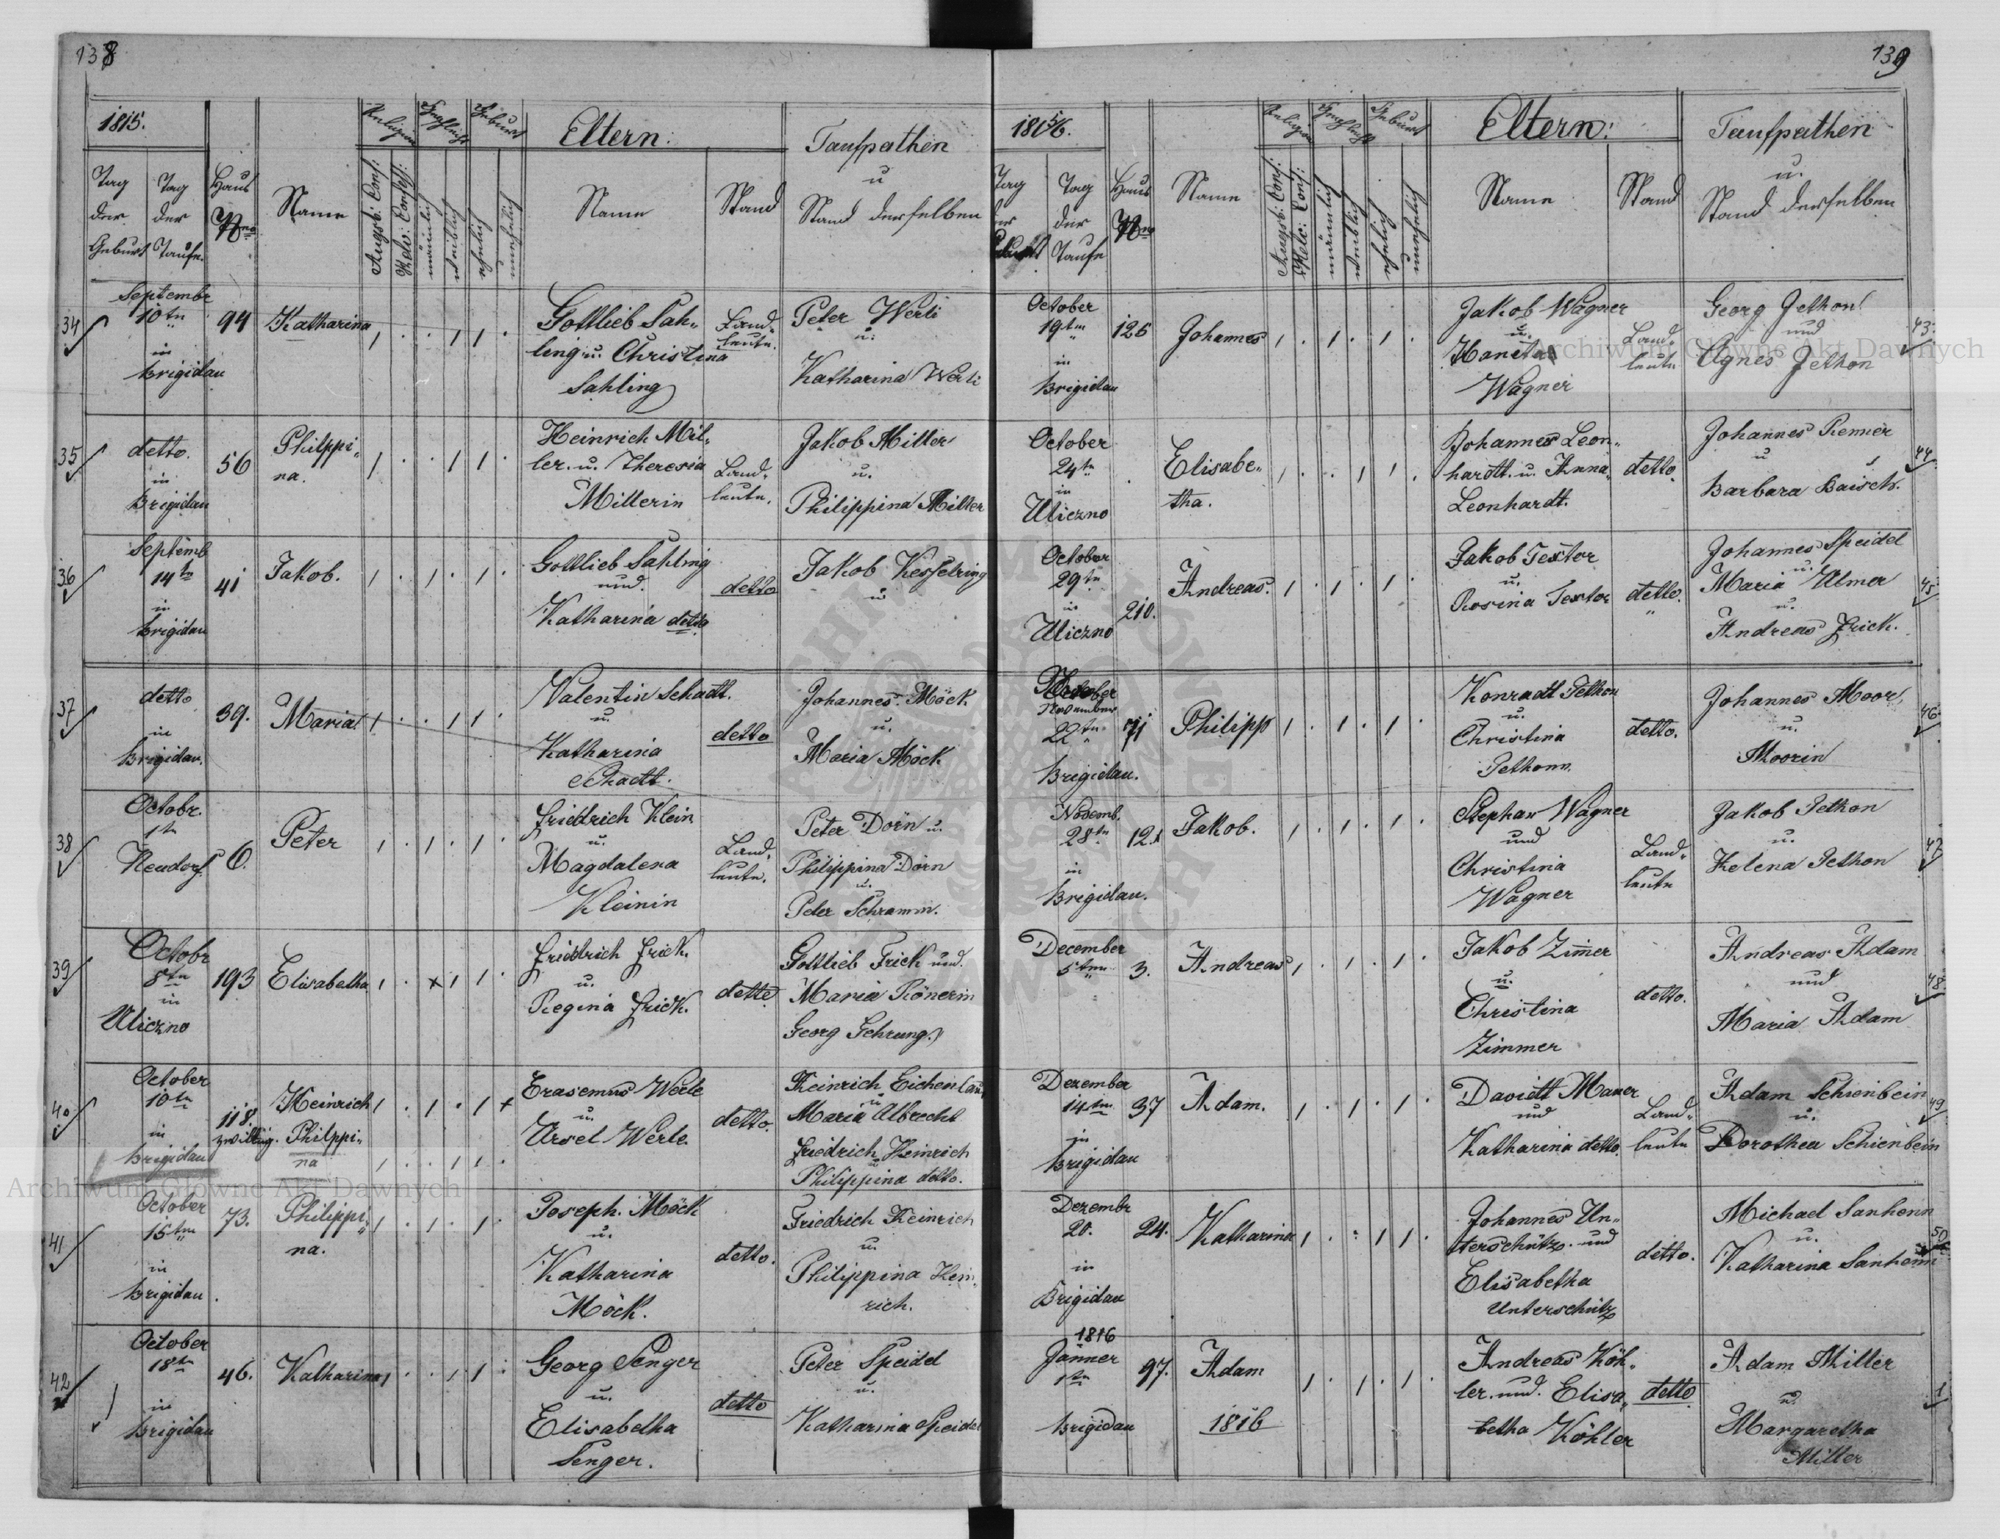 138
1815.
Religion
Geschlecht
Geburt
Eltern:
Taufpathen
u
Stand derselben
Tag
der
Geburt
Tag
der
Taufe.
Haus
Nro
Name
Augsb: Conf:
Helv: Confess:
männlich
weiblich
ehelich
unehelich
Name
Stand
34
Septembr
10tn
in
Brigidau
94
Katharina
Gottlieb Sah-
ling u. Christina
Sahling
Land-
leute.
Peter Werli
u.
Katharina Werli
35
detto.
in
Brigidau
56
Philppi-
na.
Heinrich Mil-
ler. u. Theresia
Millerin
Land-
leute.
Jakob Miller
u.
Philippina Miller
36
Septemb
14tn
in
Brigidau
41
Jakob.
Gottlieb Sahling
und.
Katharina detto
detto
Jakob Kesselring
u
37
detto
in
Brigidau.
39.
Maria
Valentin Schadt.
u.
Katharina
Schadt.
detto
Johannes Möck
u.
Maria Möck
38
Octobr.
1tn
Neudorf.
6.
Peter
Friedrich Klein
u.
Magdalena
Kleinin
Land-
leute.
Peter Dorn u.
Philippina Dorn
u.
Peter Schramm.
39
Octobr
8tn
in
Uliczno
193
Elisabetha
Friedrich Frick.
u.
Regina Frick.
detto
Gottlieb Frick und.
Maria Rönerin
Georg Gehrung.
40
October
10tn
in
Brigidau
118.
zwilling.
Heinrich
Philppi-
na
Erasemus Werle
u.
Ursel Werle
detto.
Heinrich Eichenlau
u
Maria Albrecht
Friedrich Heinrich
u
Philippina detto.
41
October
15tn
in
Brigidau.
73.
Philippi-
na.
Joseph. Möck
u.
Katharina
Möck.
detto.
Friedrich Heinrich
u.
Philippina Hein-
rich.
42
October
18tn
in
Brigidau
46.
Katharina
Georg Senger
u.
Elisabetha
Senger.
detto
Peter Speidel
u.
Katharina Speidel
139
1815/6.
Religion
Geschlecht
Geburt
Eltern:
Taufpathen
u.
Stand derselben
Tag
der
Geburt
Tag
der
Taufe
Haus
Nro
Name
Augsb: Conf:
Helv: Conf:
männlich
weiblich
ehelich
unehelich
Name
Stand
October
19tn
in
Brigidau
125
Johannes
Jakob Wagner
u.
Haneta
Wagner
Land-
leute
Georg Jethon
und
Agnes Jethon
43.
October
24tn
in
Uliczno
Elisabe-
tha.
Johannes Leon-
hardt. u. Anna
Leonhardt.
detto.
Johannes Renner
u
Barbara Baisch.
44.
October
29tn
in
Uliczno
210.
Andreas.
Jakob Textor
u.
Rosina Textor
detto.
Johannes Speidel
u.
Maria Ulmer
u.
Andreas Frick.
45
November
22tn
Brigidau.
71
Philipp
Konradt Pethon
u.
Christina
Pethonn
detto.
Johannes Moor
u.
Moorin
46.
Novemb.
28tn
in
Brigidau.
Jakob.
Stephan Wagner
und
Christina
Wagner
Land-
leute
Jakob Pethon
u.
Helena Pethon
47
December
5tn
3.
Andreas
Jakob Zimer
u.
Christina
Zimmer
detto.
Andreas Adam
und
Maria Adam
48.
Dezember
14tn
in
Brigidau
37
Adam.
Davidt Mauer
und
Katharina detto.
Land-
leute
Adam Schienbein
u.
Dorothea Schienbein
49
Dezembr
20.
in
Brigidau
24.
Katharina
Johannes Un-
terschütz. und
Elisabetha
Unterschütz
detto.
Michael Sanhenn
u.
Katharina Sanhenn
50
1816
Jänner
1tn
Brigidau
97.
Adam
1816
Andreas Köh-
ler. und. Elisa-
betha Köhler
detto.
Adam Miller
u.
Margaretha
Miller
1
Archiwum Główne Akt Dawnych
Archiwum Główne Akt Dawnych